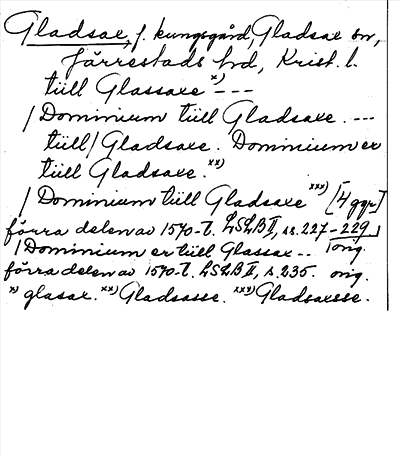 Gladsax, f. kungsgård, Gladsax sn,
Järrestads hd, Krist. l.
tiill Glassaxe x) ---
/ Dominium tiill Gladsaxe. ---
tiill / Gladsaxe. Dominium er
tiill Gladsaxe. xx)
/ Dominium tiill Gladsaxe xxx) [4 ggr]
förra delen av 1570-t. LSLB II, ss. 227-229
orig.
/ Dominium er tiill Glassax --
förra delen av 1570-t. LSLB II, s. 235. orig.
x) glasax. xx) Gladsasse. xxx) Gladsaxsse.